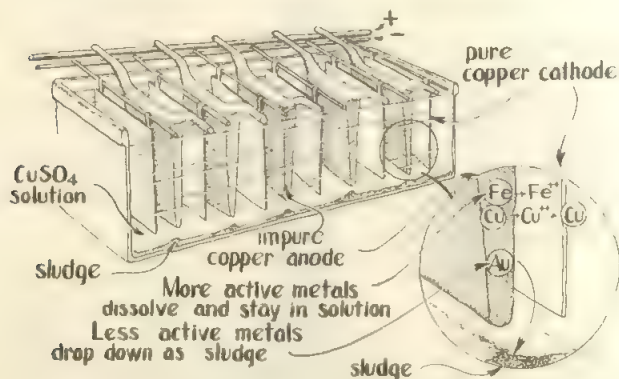 +
−
pure
copper cathode
CuSO₄
solution
Fe→Fe⁺⁺
Cu→Cu⁺⁺→Cu
Au
impure
copper anode
sludge
More active metals
dissolve and stay in solution
Less active metals
drop down as sludge
sludge